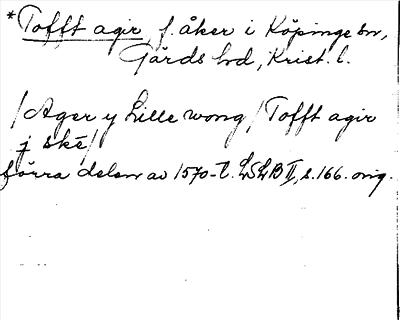 *Tofft agir, f. åker i Köpinge sn,
Gärds hd, Krist. l.
/Ager y Lille wong/Tofft agir
j ské/
förra delen av 1570-t. LSLB II, s. 166. orig.